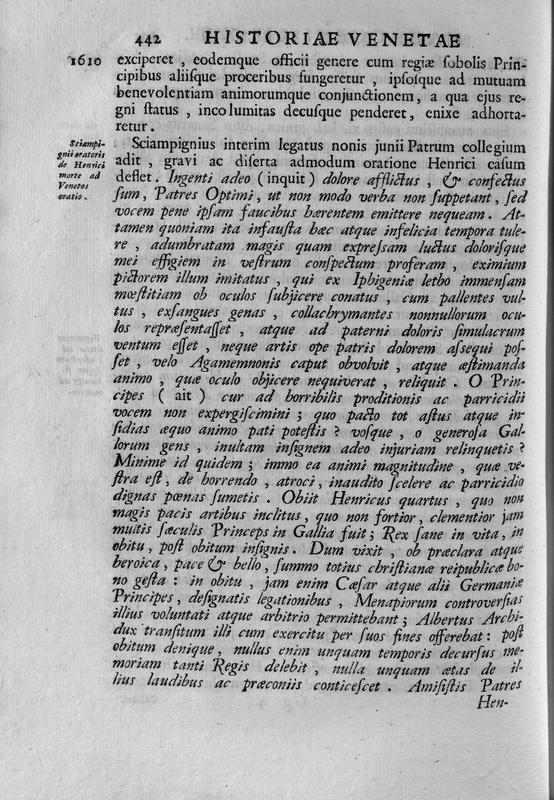 442 HISTORIAE VENETAE
1610 exciperet , eodemque officii genere cum regiæ ſobolis Prin-
cipibus aliiſque proceribus fungeretur , ipſoſque ad mutuam
benevolentiam animorumque conjunctionem, a qua ejus re-
gni ſtatus , incolumitas decuſque penderet, enixe adhorta-
retur .
Sciampi-
gnii oratoris
de Henrici
morte ad
Venetos
oratio .
Sciampignius interim legatus nonis junii Patrum collegium
adit , gravi ac diſerta admodum oratione Henrici caſum
deflet . Ingenti adeo ( inquit ) dolore afflictus , & confectus
ſum, Patres Optimi, ut non modo verba non ſuppetant, ſed
vocem pene ipſam faucibus hærentem emittere nequeam. At-
tamen quoniam ita infauſta hæc atque infelicia tempora tule-
re , adumbratam magis quam expreſsam luctus doloriſque
mei effigiem in veſtrum conſpectum proferam , eximium
pictorem illum imitatus , qui ex Iphigeniæ letho immenſam
mœſtitiam ob oculos ſubjicere conatus , cum pallentes vul-
tus , exſangues genas , collachrymantes nonnullorum ocu-
los repræſentaſſet , atque ad paterni doloris ſimulacrum
ventum eſſet , neque artis ope patris dolorem aſsequi poſ-
ſet , velo Agamemnonis caput obvolvit , atque æſtimanda
animo , quæ oculo objicere nequiverat , reliquit . O Prin-
cipes ( ait ) cur ad horribilis proditionis ac parricidii
vocem non expergiſcimini ; quo pacto tot aſtus atque in-
ſidias æquo animo pati poteſtis ? voſque , o generoſa Gal-
lorum gens , inultam inſignem adeo injuriam relinquetis ?
Minime id quidem ; immo ea animi magnitudine , quæ ve-
ſtra eſt , de horrendo , atroci, inaudito ſcelere ac parricidio
dignas pœnas ſumetis . Obiit Henricus quartus , quo non
magis pacis artibus inclitus, quo non fortior, clementior jam
multis ſæculis Princeps in Gallia fuit ; Rex ſane in vita, in
obitu, poſt obitum inſignis . Dum vixit , ob præclara atque
heroica , pace & bello , ſummo totius chriſtianæ reipublicæ bo-
no geſta : in obitu , jam enim Cæſar atque alii Germaniæ
Principes, deſignatis legationibus , Menapiorum controverſias
illius voluntati atque arbitrio permittebant ; Albertus Archi-
dux tranſitum illi cum exercitu per ſuos fines offerebat : poſt
obitum denique , nullus enim unquam temporis decurſus me-
moriam tanti Regis delebit , nulla unquam ætas de il-
lius laudibus ac præconiis conticeſcet . Amiſiſtis Patres
Hen-